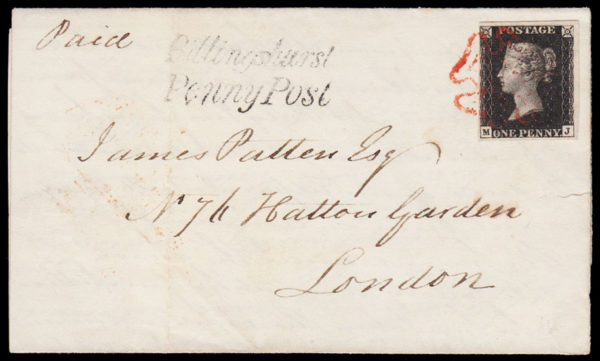 Paid
Billinghurst
Penny Post
POSTAGE
M ONE PENNY J
James Patten Esq
No 76 Hatton Garden
London